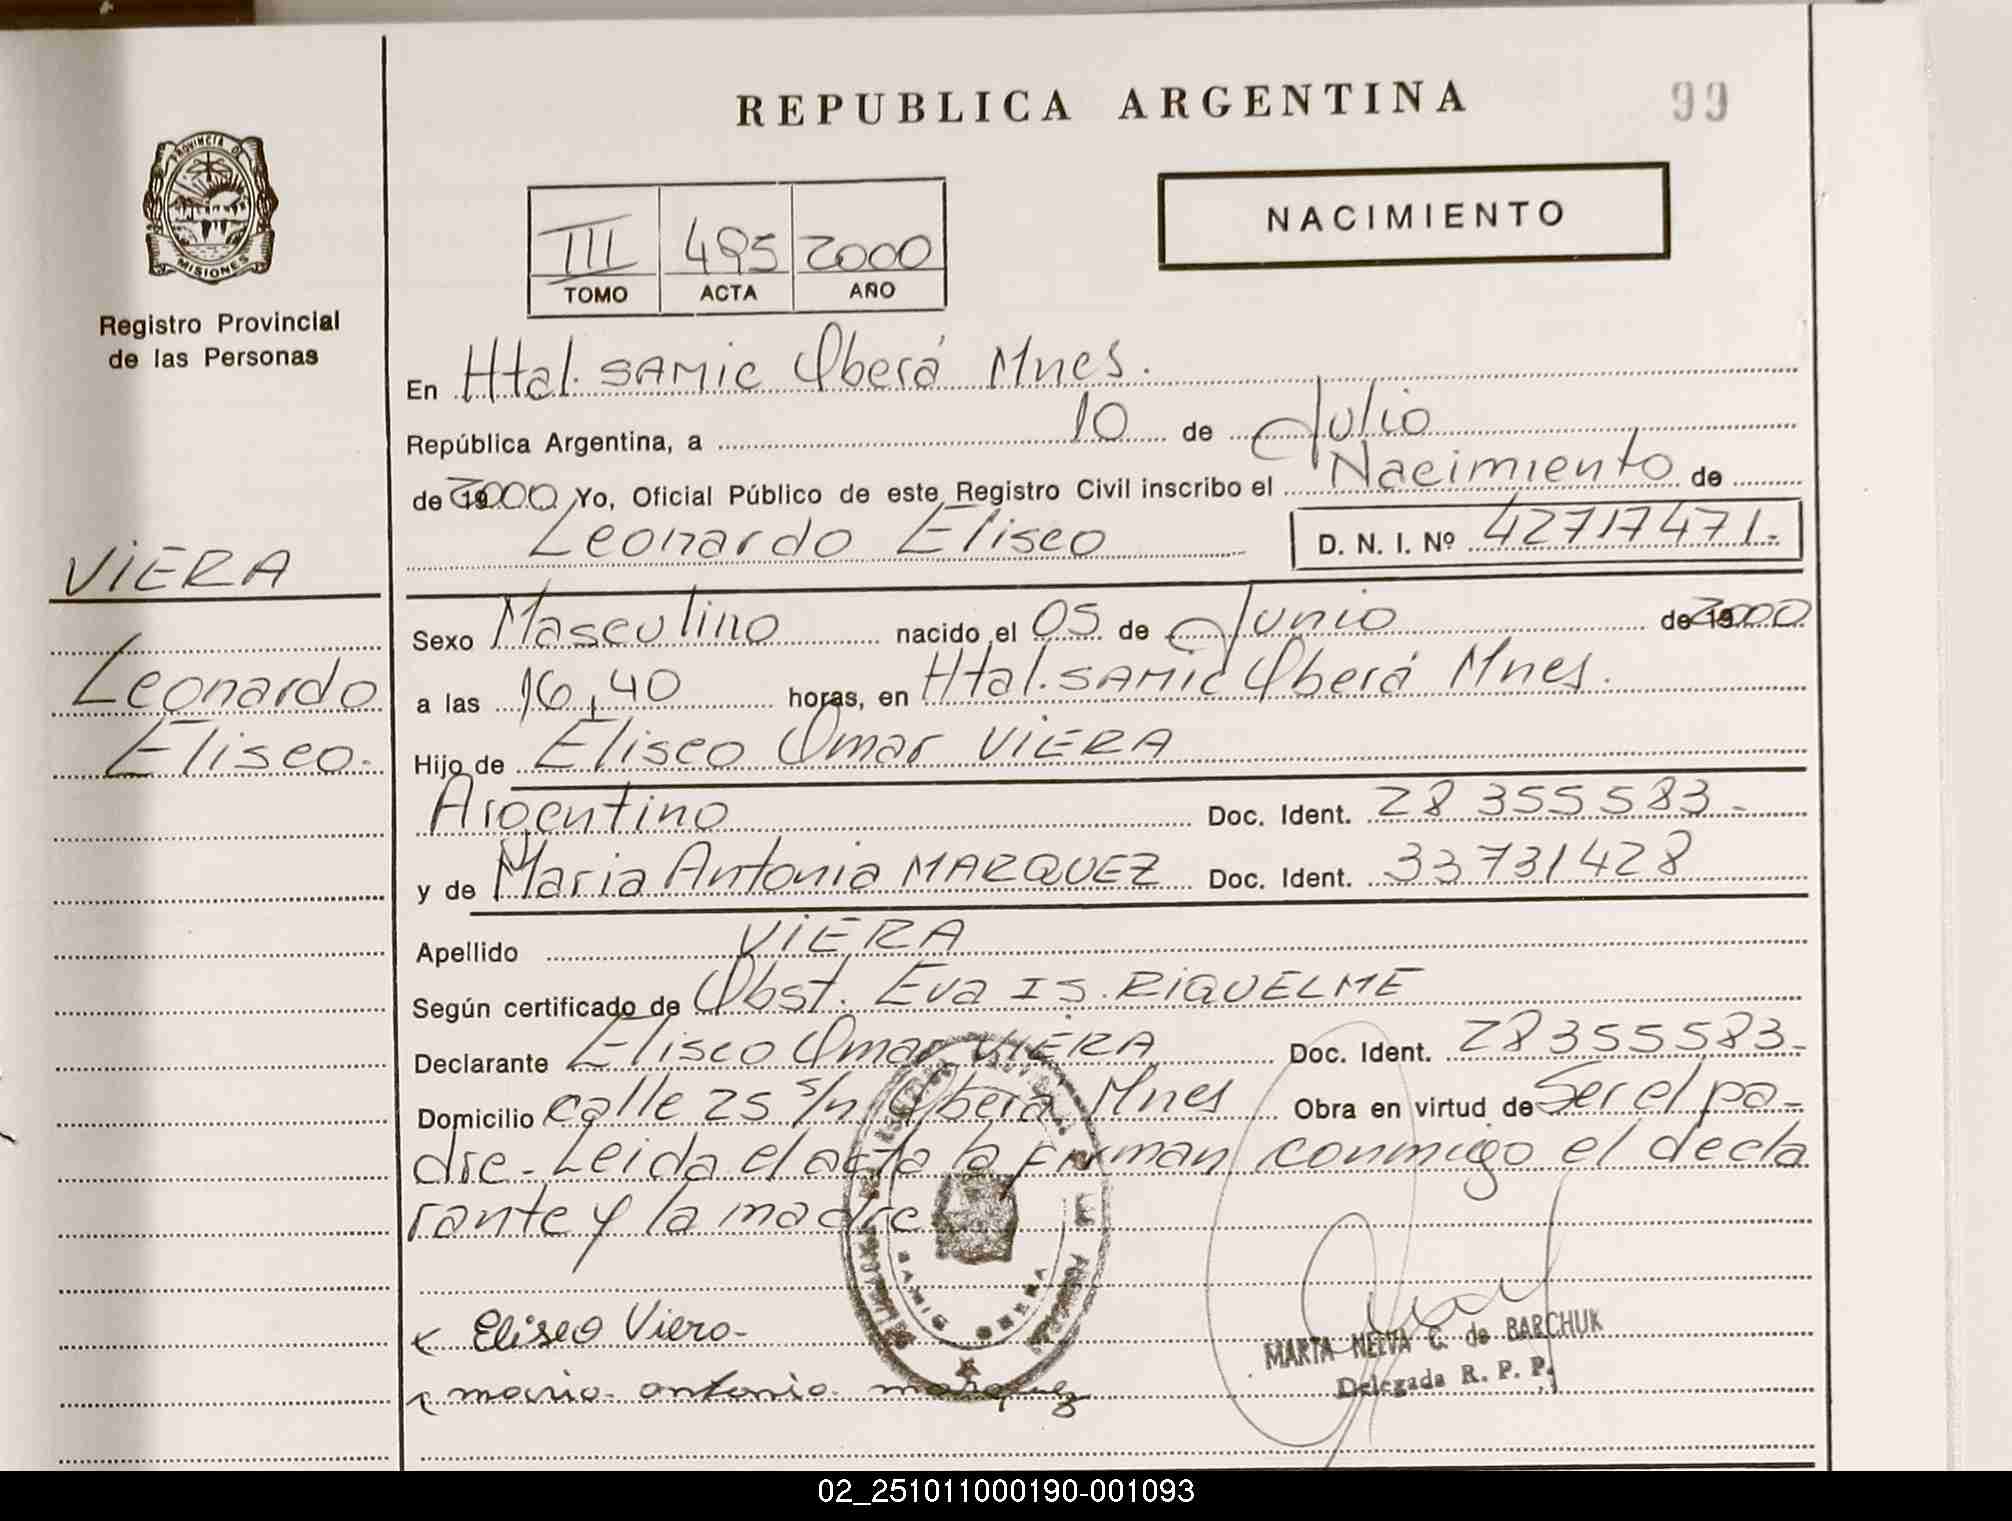 REPUBLICA ARGENTINA
99
PROVINCIA DE
MISIONES
Registro Provincial
de las Personas
NACIMIENTO
III 495 2000
TOMO ACTA AÑO
En Htal. SAMIC Oberá Mnes.
República Argentina, a 10 de Julio
de 2000 Yo, Oficial Público de este Registro Civil inscribo el Nacimiento de
Leonardo Eliseo D. N. I. Nº 42717471.-
VIERA
Leonardo
Eliseo.
Sexo Masculino nacido el 05 de Junio de 2000
a las 16,40 horas, en Htal. SAMIC Oberá Mnes.
Hijo de Eliseo Omar VIERA
Argentino Doc. Ident. 28355583-
y de Maria Antonia MARQUEZ Doc. Ident. 33731428
Apellido VIERA
Según certificado de Obst. Eva IS. RIQUELME
Declarante Eliseo Omar VIERA Doc. Ident. 28355583-
Domicilio calle 25 s/n Oberá Mnes Obra en virtud de Ser el pa-
dre. Leida el acta la firman conmigo el decla
rante y la madre
SAMIC OBERA
Eliseo Viera-
maria antonia marquez
MARTA NELVA C. de BARCHUK
Delegada R. P. P.
02_251011000190-001093